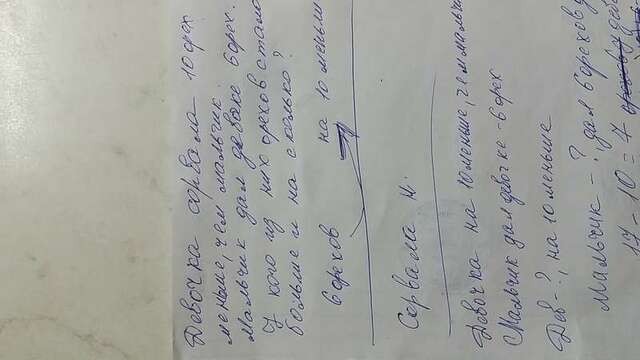 Девочка сорвала 10 орех
меньше, чем мальчик.
Мальчик дал девочке 6 орех.
У кого из них орехов стало
больше и на сколько?
6 орехов на 10 меньш
Сорвала н.
Девочка на 10 меньше, чем мальчи
Мальчик дал девочке - 6 орех
Дев - ?, на 10 меньше
Мальчик - ?, дал 6 орехов д
17 - 10 = 7